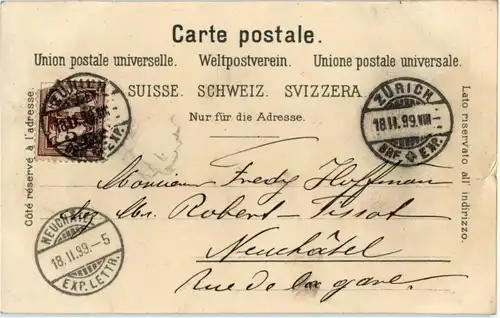 Carte postale.
Union postale universelle. Weltpostverein. Unione postale universale.
SUISSE. SCHWEIZ. SVIZZERA.
Nur für die Adresse.
Côté réservé à l'adresse.
Lato riservato all' indirizzo.
ZÜRICH
18.II.99.VIII–
BRF. EXP.
Monsieur Fredy Hoffman
chez Mr. Robert-Tissot
Neuchâtel
Rue de la gare.
NEUCHÂTEL
18.II.99.–5
EXP. LETTR.